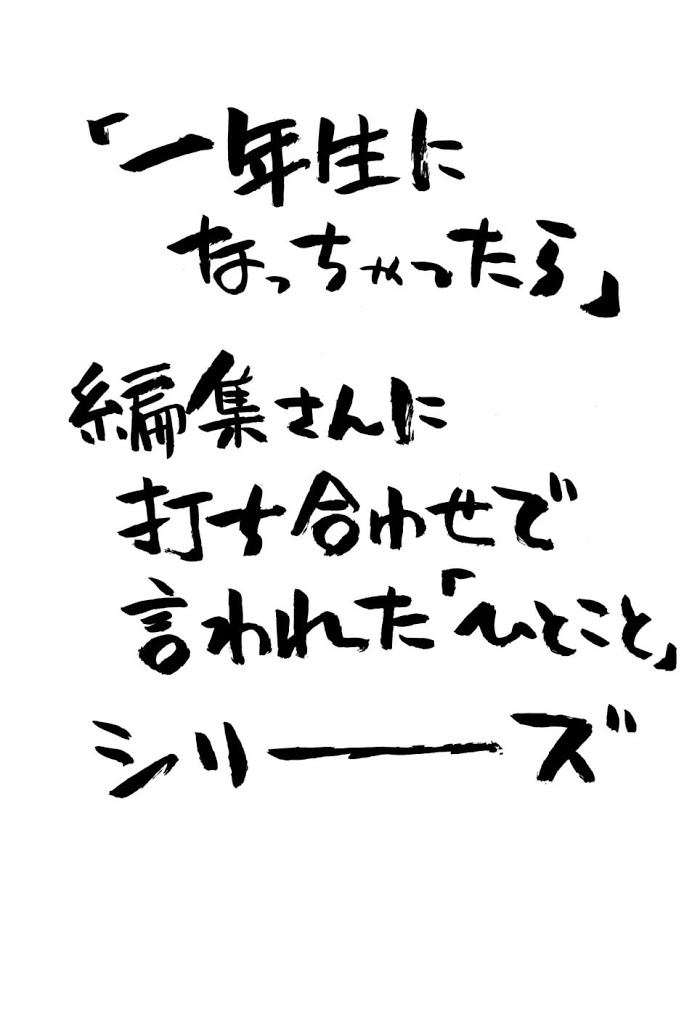 「一年生に
なっちゃったら」
編集さんに
打ち合わせで
言われた「ひとこと」
シリーズ